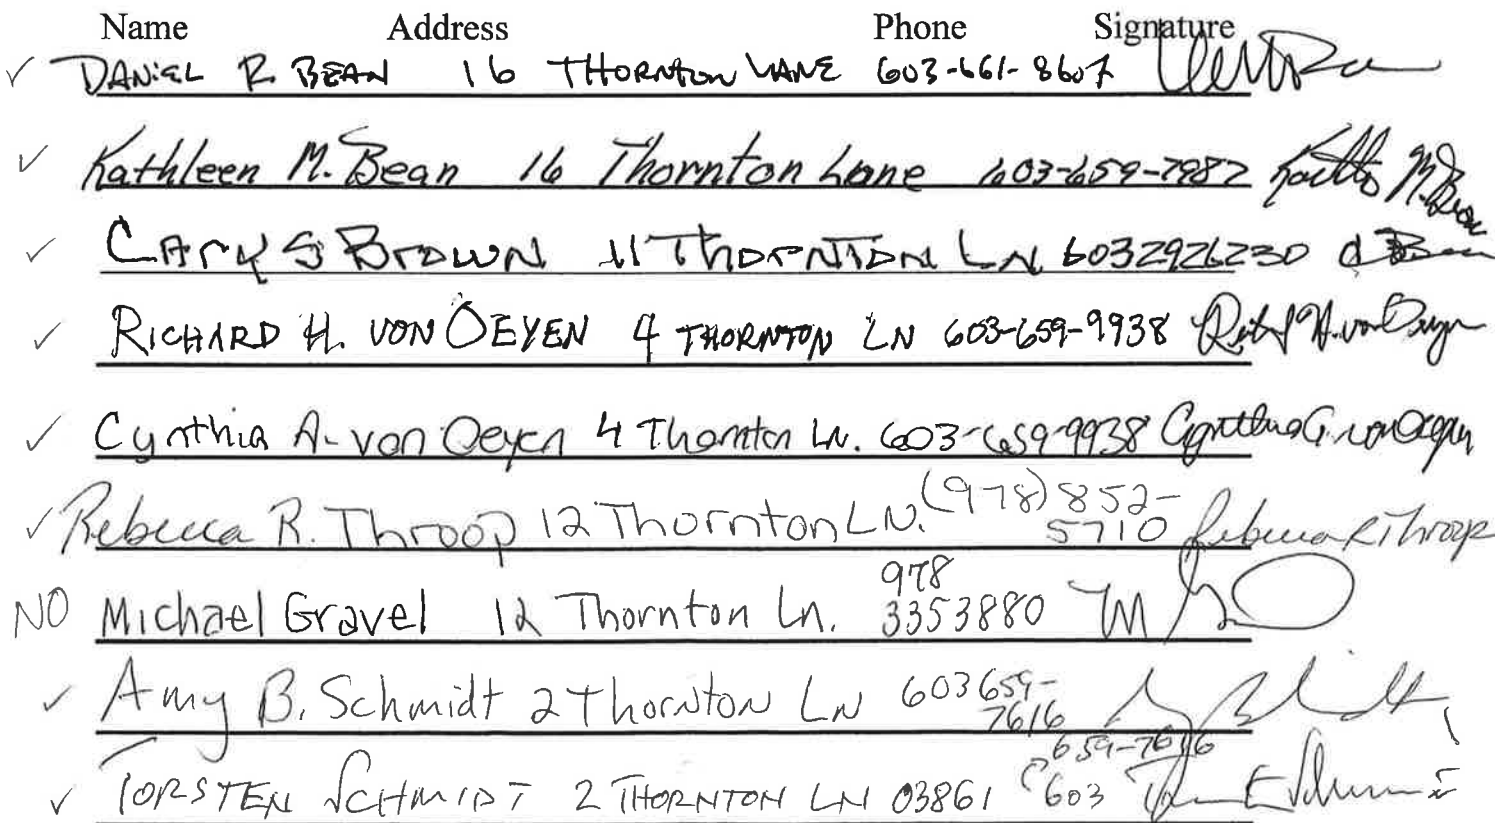 Name Address Phone Signature
✓ DANIEL R. BEAN 16 THORNTON LANE 603-661-8607
✓ Kathleen M. Bean 16 Thornton Lane 603-659-7982 M. Bean
✓ CAry S BrowN 11 ThorNTON LN 6032926230
✓ RICHARD H. VON OEYEN 4 THORNTON LN 603-659-9938
✓ Cynthia A. von Oeyen 4 Thornton LN. 603-659-9938
✓ Rebecca R. Throop 12 Thornton LN. (978) 852-5710 Rebecca R Throop
NO Michael Gravel 12 Thornton Ln. 978 3353880
✓ Amy B. Schmidt 2 Thornton LN 603 659-7616
✓ TORSTEN SCHMIDT 2 THORNTON LN 03861 603 659-7616